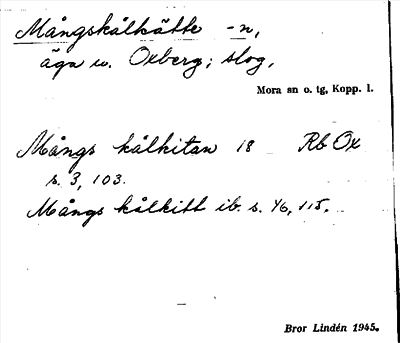 Mångskålkätte -n,
äga v. Oxberg; slog.
Mora sn o. tg, Kopp. l.
Mångs kålkitan 18 Rb Ox
s. 3, 103.
Mångs kålkitt ib. s. 46, 115.
Bror Lindén 1945.